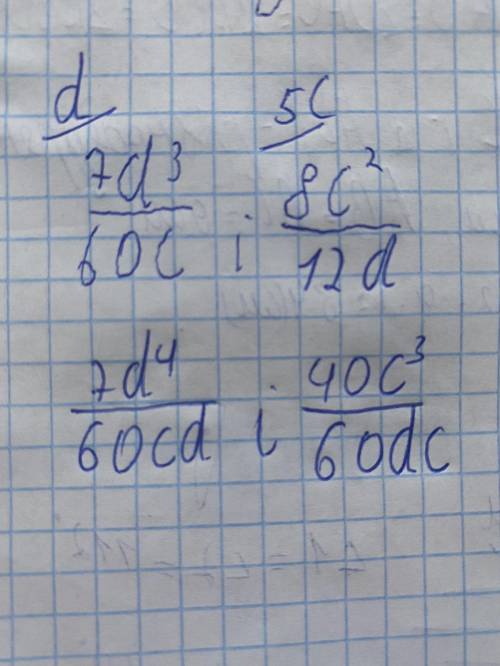 d 5c
7d³/60c i 8c²/12d
7d⁴/60cd i 40c³/60dc